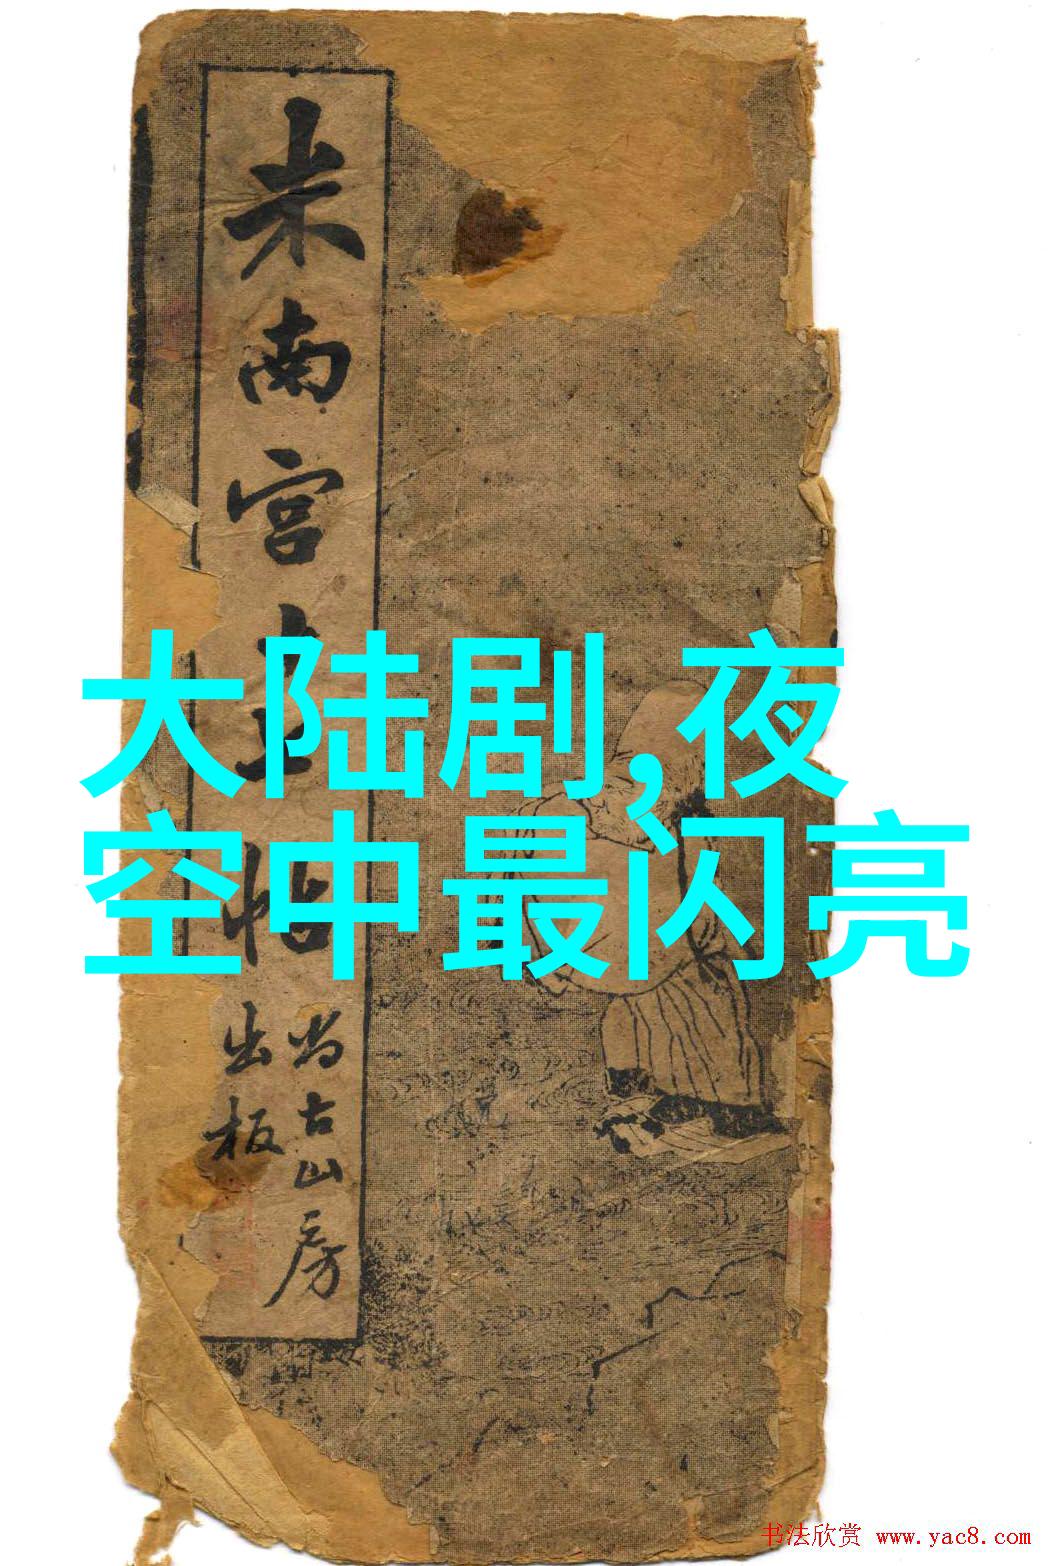 大陆剧,夜
空中最闪亮
米南宫
帖
尚古山房
出版
书法欣赏 www.yac8.com